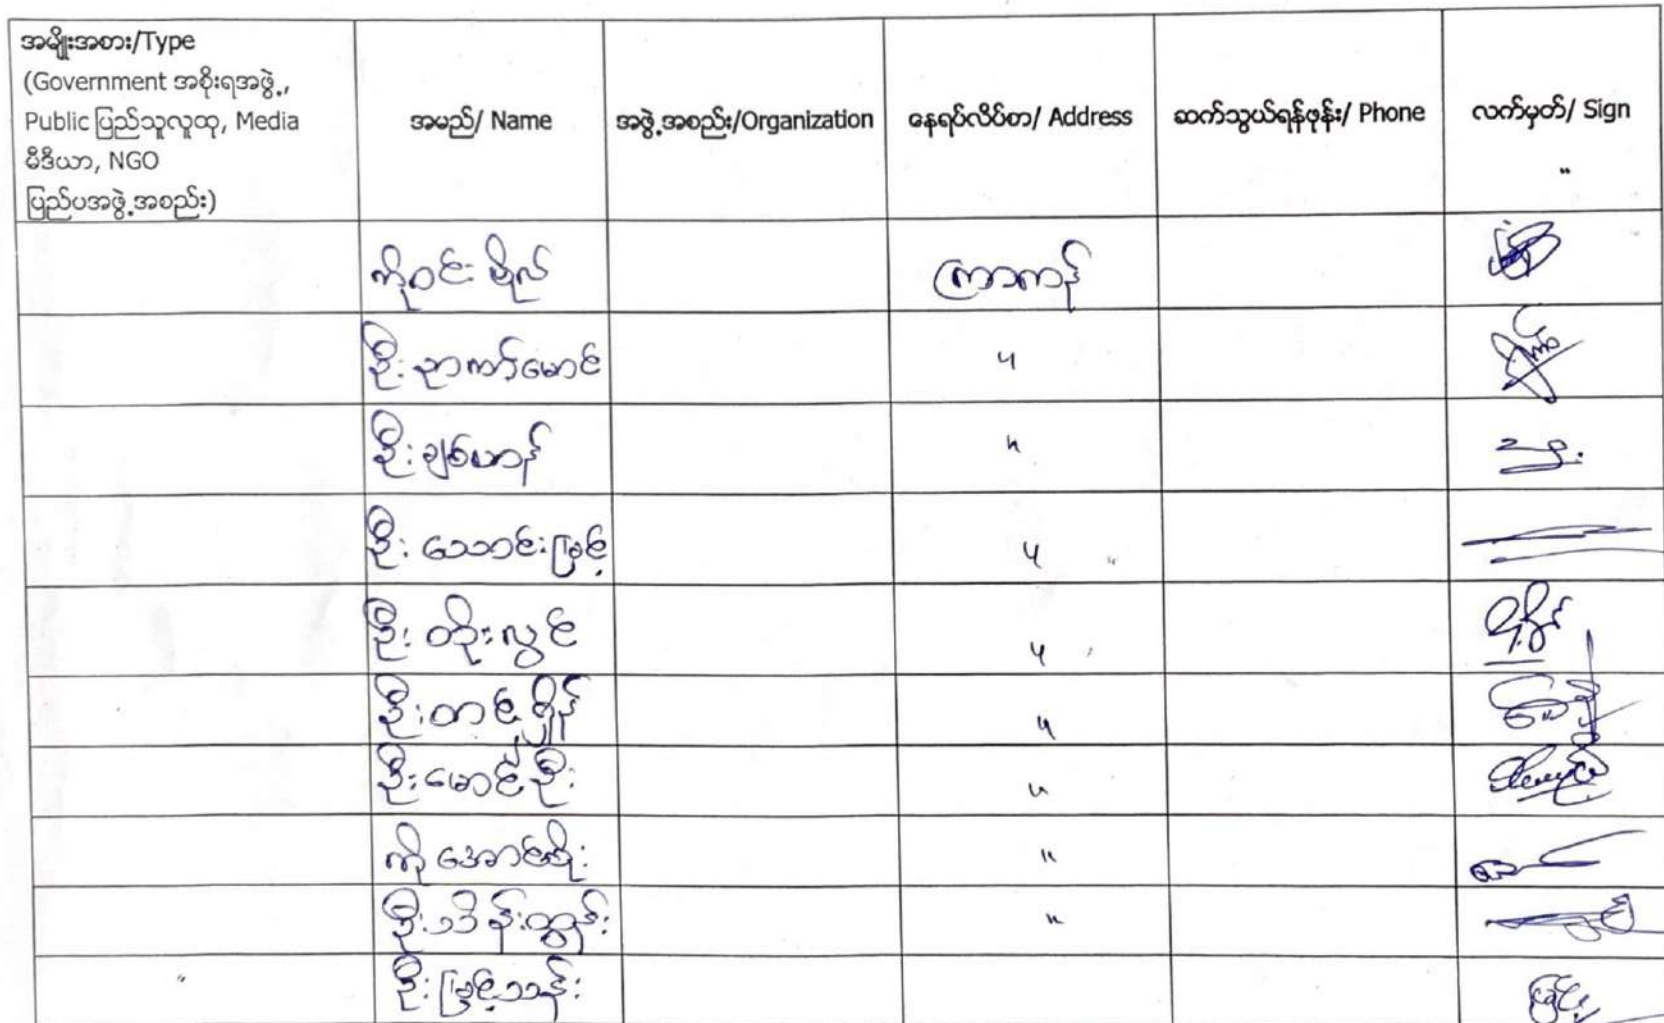 အမျိုးအစား/Type
(Government အစိုးရအဖွဲ့,
Public ပြည်သူလူထု, Media
မီဒီယာ, NGO
ပြည်ပအဖွဲ့အစည်း)
အမည်/ Name
အဖွဲ့အစည်း/Organization
နေရပ်လိပ်စာ/ Address
ဆက်သွယ်ရန်ဖုန်း/ Phone
လက်မှတ်/ Sign
ကိုဝင်းဗိုလ် ကြာကန်
ဦးဉာဏ်မောင် "
ဦးချစ်ဟန် "
ဦးသောင်းမြင့် "
ဦးတိုးလွင် "
ဦးတင့်ရှိန် "
ဦးမောင်ဦး "
ကိုအောင်စိုး "
ဦးသိန်းထွန်း "
ဦးမြင့်သန်း